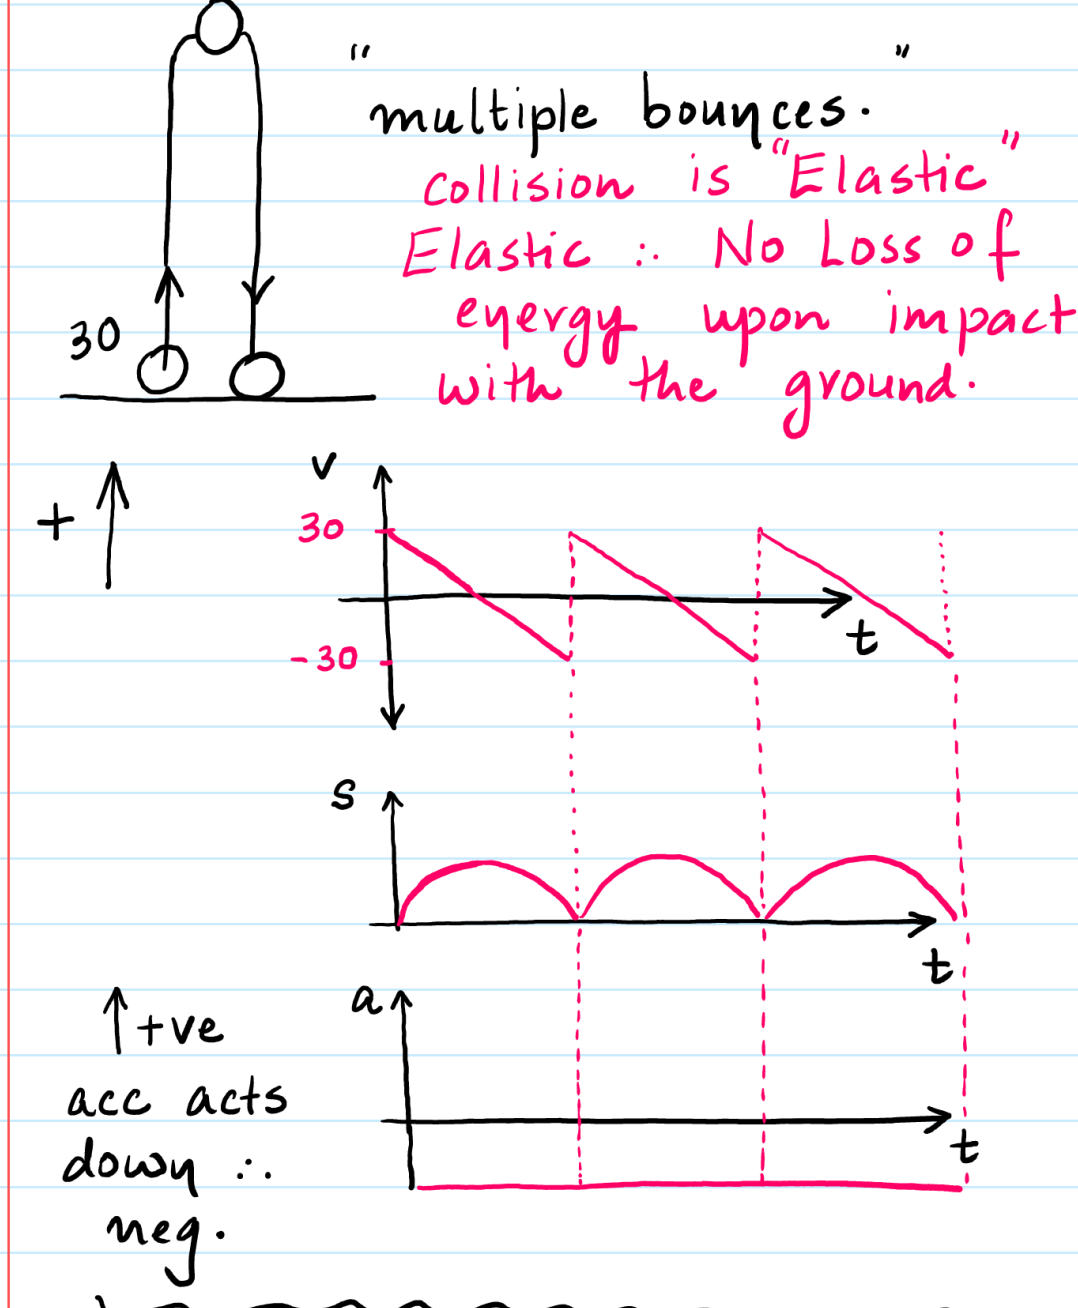 " "
multiple bounces.
collision is "Elastic"
Elastic ∴ No Loss of
energy upon impact
with the ground.
30
+
v
30
-30
t
s
t
a
↑ +ve
acc acts
down ∴
neg.
t